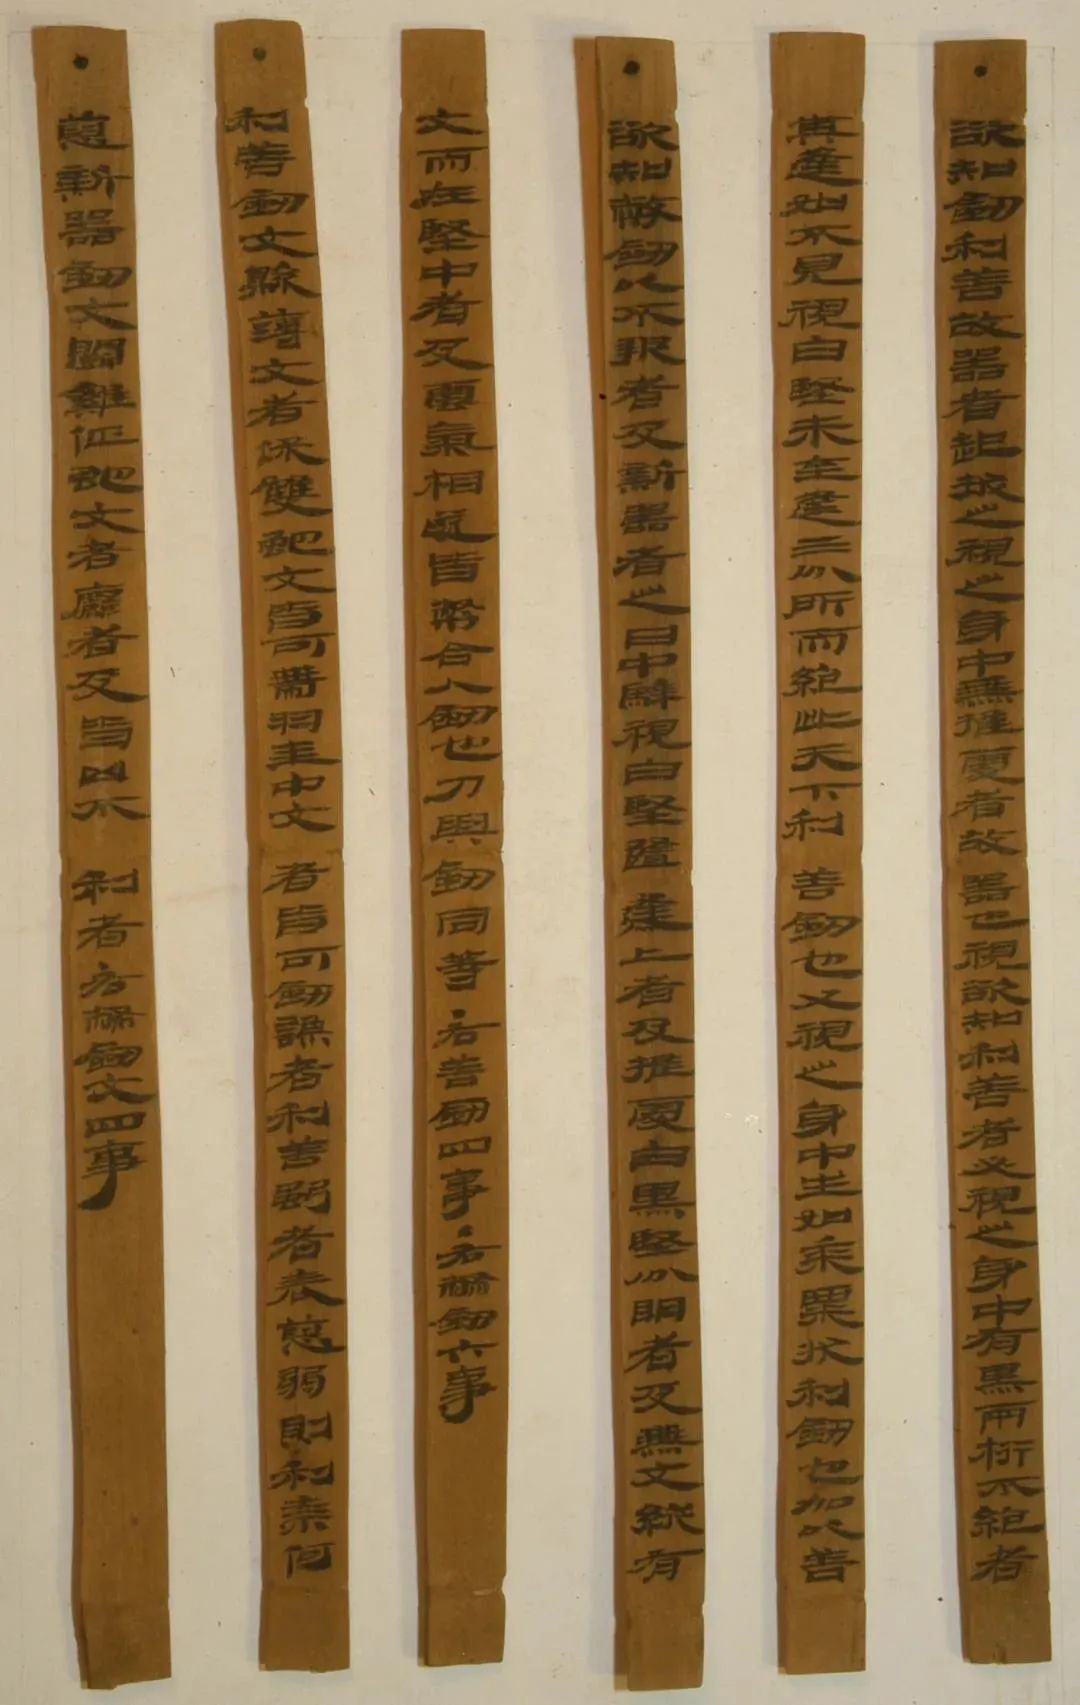 欲知劍利善故器者起拔之視之身中無推處者故器也視欲知利善者必視之身中有黑兩桁不絕者
其逢如不見視白堅未至逢三分所而絕此天下利善劍也又視之身中生如黍粟狀利劍也加以善
欲知幣劍以不報者及新器者之日中騂視白堅隨逢上者及推處白黑堅分明者及無文縱有
文而在堅中者及雲氣相遂皆幣合人劍也刀與劍同等·右善劍四事·右幣劍六事
利善劍文縣薄文者保雙蛇文皆可帶羽圭中文者皆可劍謙者利善強者表恿弱則利奈何
恿新器劍文鬥雞征蛇文者麤者及皆凶不利者右幣劍文四事